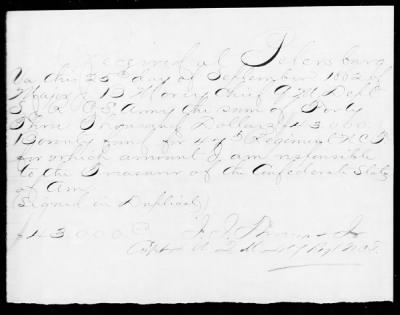 Received at Petersburg
Va this 25th day of September 1862 of
Major J B Morey Chief Q M Dept
C S Army the sum of Forty
Three Thousand Dollars
Bounty fund for 44th Regiment N C T
for which amount I am responsible
to the Treasurer of the Confederate States
of Amr
(Signed in Duplicate)
43 000
Capt A Q M 44 Reg N C T